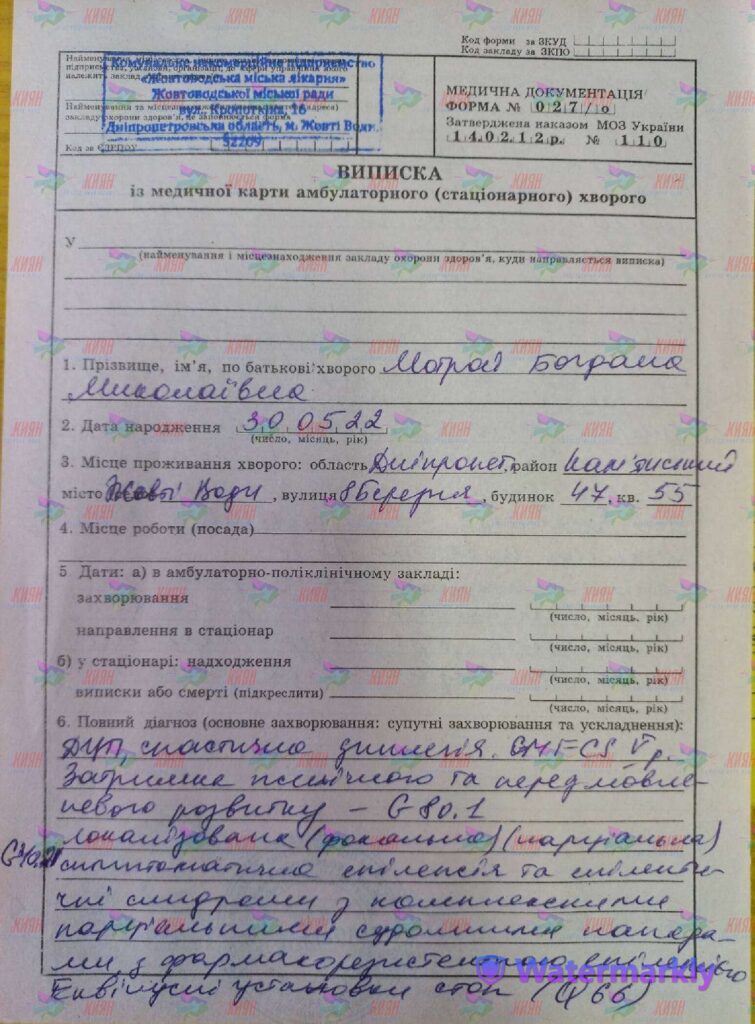 Код форми за ЗКУД
Код закладу за ЗКПО
Комунальне некомерційне підприємство
«Жовтоводська міська лікарня»
Жовтоводської міської ради
вул. Кропоткіна, 16
Дніпропетровська область, м. Жовті Води,
52209
Код за ЄДРПОУ
МЕДИЧНА ДОКУМЕНТАЦІЯ
ФОРМА № 027/о
Затверджена наказом МОЗ України
14.02.12р. № 110
ВИПИСКА
із медичної карти амбулаторного (стаціонарного) хворого
У
(найменування і місцезнаходження закладу охорони здоров'я, куди направляється виписка)
1. Прізвище, ім'я, по батькові хворого Богдана
Миколаївна
2. Дата народження 30 05 22
(число, місяць, рік)
3. Місце проживання хворого: область Дніпропет, район Кам'янський
місто Жовті Води, вулиця 8 Березня, будинок 47, кв. 55
4. Місце роботи (посада)
5 Дати: а) в амбулаторно-поліклінічному закладі:
захворювання
(число, місяць, рік)
направлення в стаціонар
(число, місяць, рік)
б) у стаціонарі: надходження
(число, місяць, рік)
виписки або смерті (підкреслити)
(число, місяць, рік)
6. Повний діагноз (основне захворювання: супутні захворювання та ускладнення):
ДЦП, спастична диплегія. GMFCS V р.
Затримка психічного та передмовле-
нєвого розвитку - G 80.1
локалізована (фокальна) (парціальна)
G40.2 симптоматична епілепсія та епілепти-
чні синдроми з комплексними
парціальними судомними напада-
ми з фармакорезистентною
Еквінусні установки стоп (Q 66)
Watermarkly
КИЯН